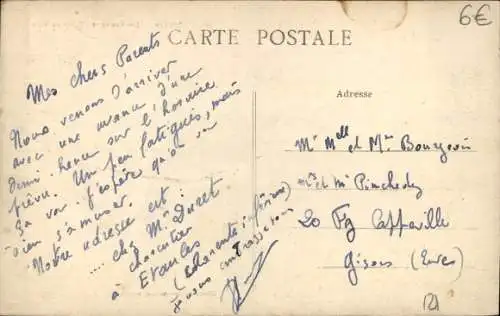 6€
CARTE POSTALE
Adresse
Mes chers Parents
Nous venons d'arriver
avec une avance d'une
demi-heure sur l'horaire
prévu. Un peu fatigués, mais
ça va. J'espère qu'on va
bien s'amuser.
Notre adresse est :
.... chez Mr Duret
charcutier
à Etaules
(charente inférieure)
je vous embrasse tous
Mr Mlle et Mme Bourgeois
20 Fg Cappeville
Gisors (Eure)